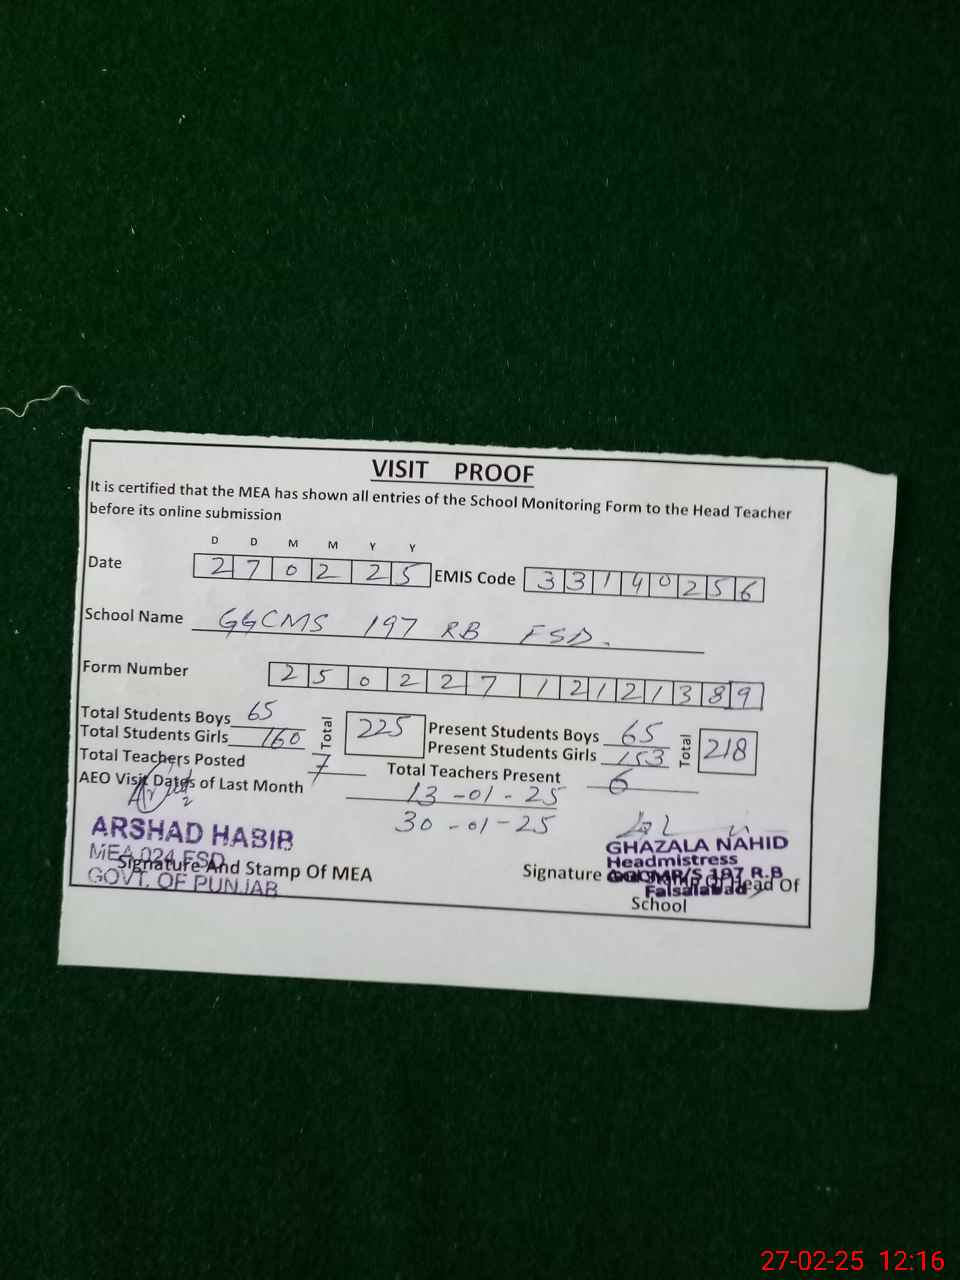 VISIT PROOF
It is certified that the MEA has shown all entries of the School Monitoring Form to the Head Teacher
before its online submission
D D M M Y Y
Date 2 7 0 2 2 5 EMIS Code 3 3 1 4 0 2 5 6
School Name GGCMS 197 RB FSD.
Form Number 2 5 0 2 2 7 1 2 1 2 1 3 8 9
Total Students Boys 65 Total 225 Present Students Boys 65 Total 218
Total Students Girls 160 Present Students Girls 153
Total Teachers Posted 7 Total Teachers Present 6
AEO Visit Dates of Last Month 13-01-25
30-01-25
ARSHAD HABIB
MEA 024 FSD
GOVT. OF PUNJAB
Signature And Stamp Of MEA
GHAZALA NAHID
Headmistress
GGCMR/S 197 R.B
Faisalabad
Signature Of Head Of
School
27-02-25 12:16